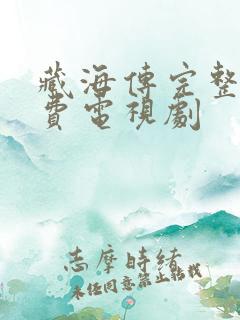 藏海傳完整
費電視劇
志摩時緒
未经同意禁止转载